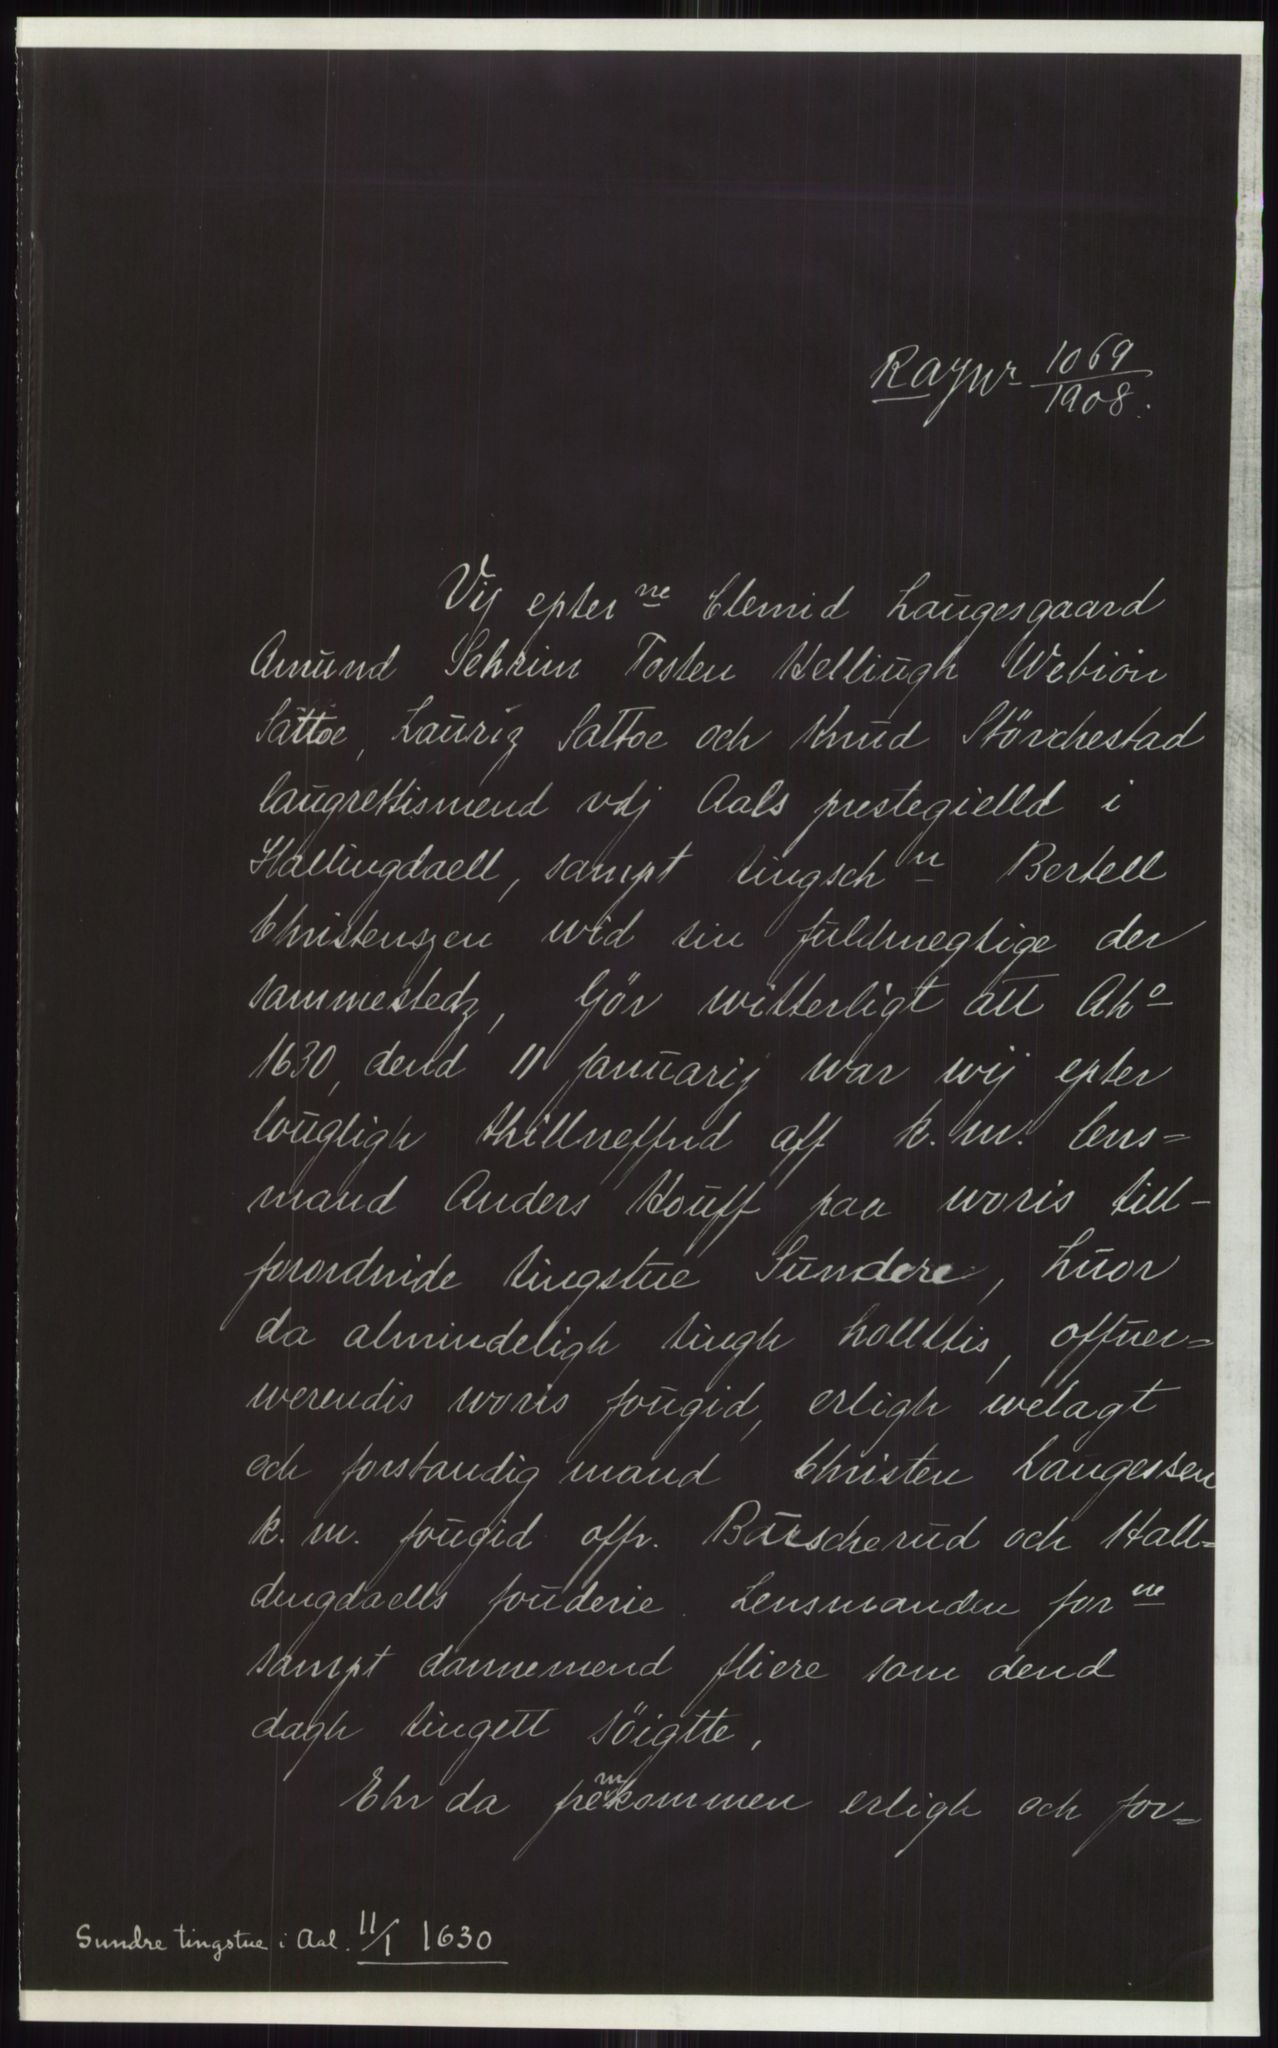 RAJNr 1069/1908.
Vij epter ne Clemid Laugesgaard
Amund Sehrim Tosten Helliugh Webiön
Sattoe, Lauriz Sattoe och Knud Störchestad
laugrettismend vdj Aals prestegielld i
Hallingdaell, sampt tingsch n Bertell
Christenszen wid sin fuldmegtige der
sammestedz, Gör witterligt att Ah o
1630, dend 11 Januarij war wij epter
lougligh thillneffnd aff k. m. lens=
mand Anders Houff paa woris till-
forordnide tingstue Sundere, huor
da almindeligh tingh hollttis, offuer=
werendis woris fougid, erligh welagt
och forstandig mand Christen Laugessen
k. m. fougid offr. Burscherud och Hall=
dingdaells fouderie. Lensmanden for ne
sampt dannemend fliere som dend
dagh tingett söigtte.
Ehr da fremkommen erligh och for=
Sundre tingstue i Aal. 11/1 1630